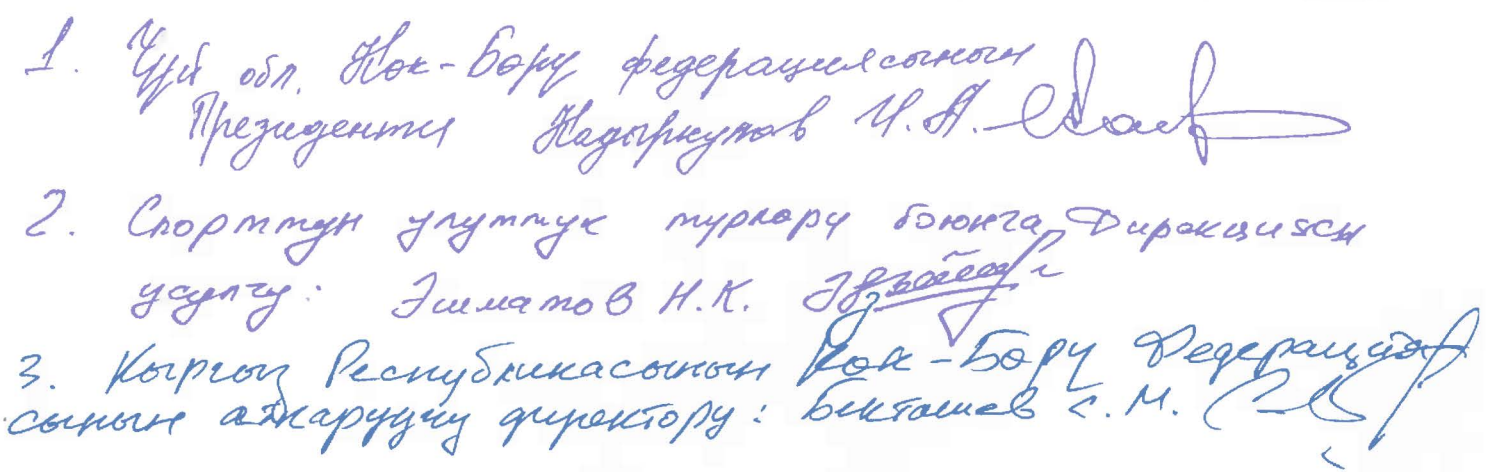 1. Чүй обл. Көк-Бөрү федерациясынын
Президенти Кадыркулов И.А.
2. Спорттун улуттук түрлөрү боюнча Дирекциясы
Эшматов Н.К.
3. Кыргыз Республикасынын Көк-Бөрү Федерация
сынын аткаруучу директору: Бекташев С.М.